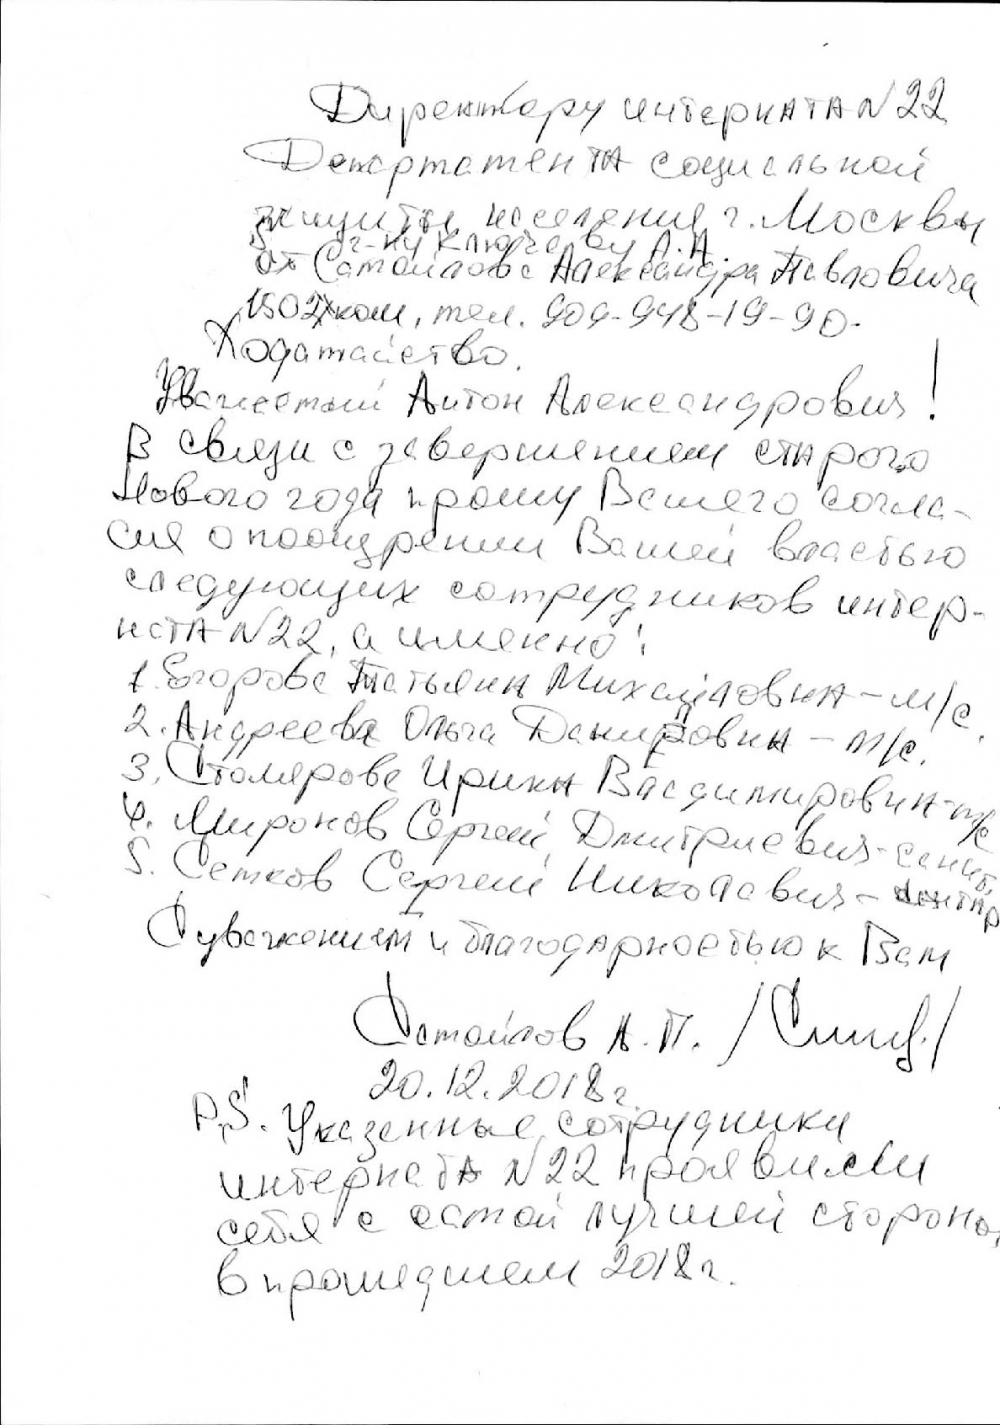 Директору интерната N 22
Департамента социальной
защиты населения г. Москвы
г-ну Ключеву А.А.
от Самойлова Александра Павловича
1502 ком, тел. 909-948-19-90.
Ходатайство.
Уважаемый Антон Александрович!
В связи с завершением старого
Нового года прошу Вашего согла-
сия о поощрении Вашей властью
следующих сотрудников интер-
ната N 22, а именно:
1. Егорова Татьяна Михайловна – м/с.
2. Андреева Ольга Данировна – м/с.
3. Столярова Ирина Владимировна – м/с
4. Миронов Сергей Дмитриевич – санит.
5. Сетков Сергей Николаевич –
С уважением и благодарностью к Вам
Самойлов А.П.
20.12.2018 г.
P.S. Указанные сотрудники
интерната N 22 проявили
себя с самой лучшей стороны
в прошедшем 2018 г.